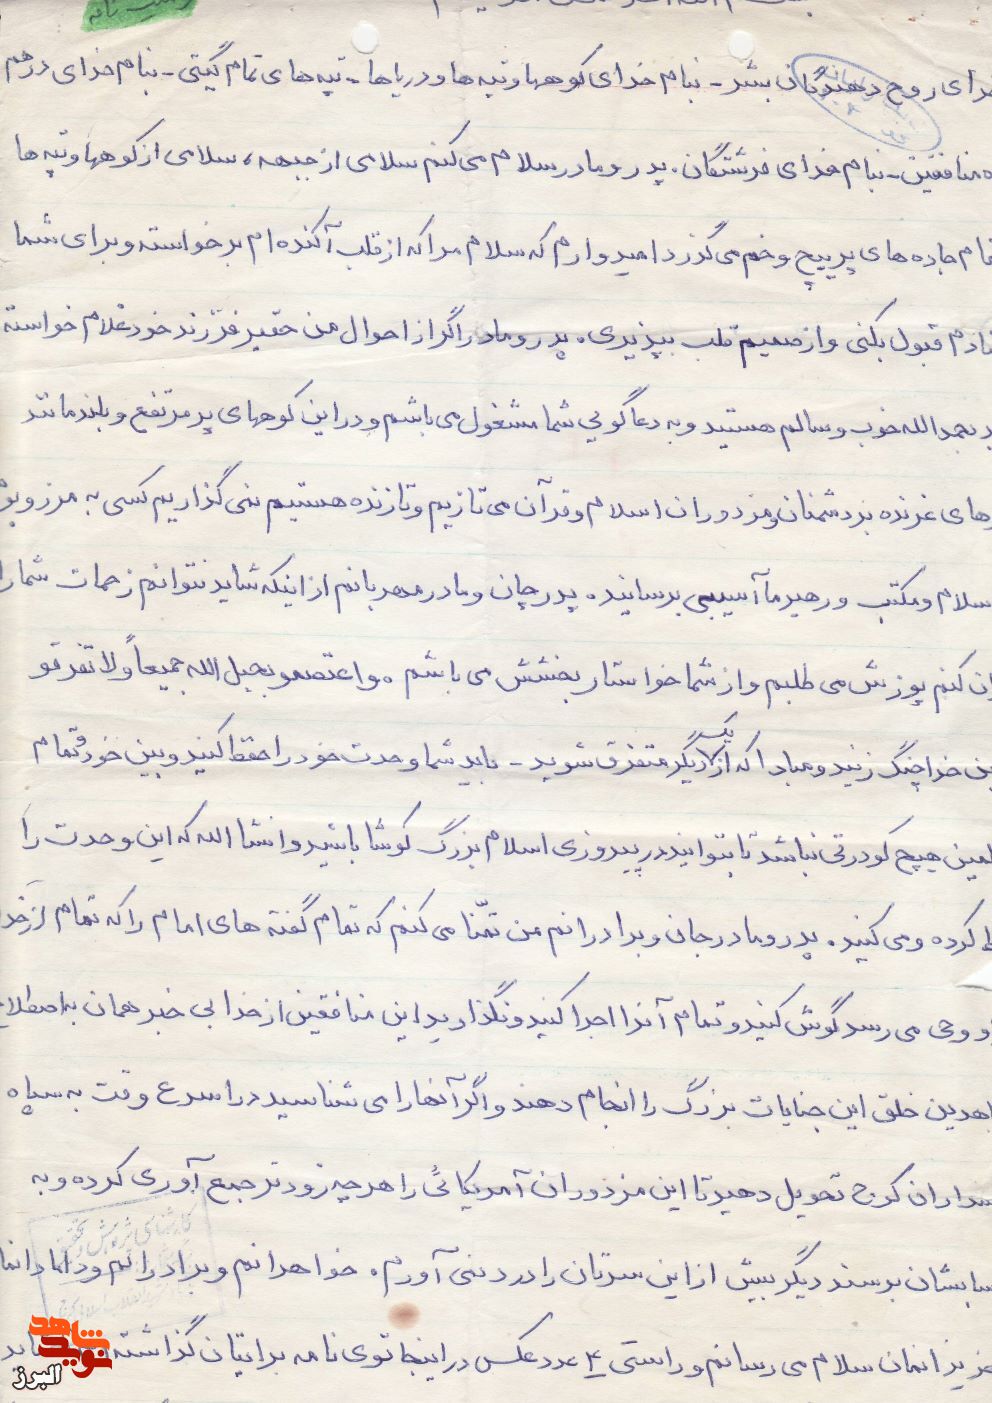 وصیت نامه
خدای روح دهندگان بشر - بنام خدای کوهها و تپه ها و دریاها - تپه های تمام گیتی - بنام خدای درهم
منافقین - بنام خدای فرشتگان. پدر و مادر سلام می کنم سلامی از جبهه، سلامی از کوهها و تپه ها
تمام جاده های پر پیچ و خم می گذرد امیدوارم که سلام مرا که از قلب آکنده ام برخواسته و برای شما
قبول بکنی و از صمیم قلب بپذیری. پدر و مادر اگر از احوال من حقیر فرزند خود غلام خواسته
بحمدالله خوب و سالم هستید و به دعاگویی شما مشغول می باشم و در این کوههای پر مرتفع و بلند مانند
های غرنده بر دشمنان و مزدوران اسلام و قرآن می تازیم و تا زنده هستیم نمی گذاریم کسی به مرز و بوم
اسلام و مکتب و رهبر ما آسیبی برسانند. پدر جان و مادر مهربانم از اینکه شاید نتوانم زحمات شما را
کنم پوزش می طلبم و از شما خواستار بخشش می باشم. واعتصمو بحبل الله جمیعاً ولا تفرقو
خدا چنگ زنید و مبادا که از یکدیگر متفرق شوید - باید شما وحدت خود را حفظ کنید و بین خود و تمام
هیچ کودرتی نباشد تا بتوانید در پیروزی اسلام بزرگ کوشا باشید و انشا الله که این وحدت را
کرده و می کنید. پدر و مادر جان و برادرانم من تمنّا می کنم که تمام گفته های امام را که تمام از خدا
و وحی می رسد گوش کنید و تمام آنرا اجرا کنید و نگذارید این منافقین از خدا بی خبر همان به اصطلاح
مجاهدین خلق این جنایات بزرگ را انجام دهند و اگر آنها را می شناسید در اسرع وقت به سپاه
پاسداران کرج تحویل دهید تا این مزدوران آمریکائی را هر چه زودتر جمع آوری کرده و به
حسابشان برسند دیگر بیش از این سرتان را درد نمی آورم. خواهرانم و برادرانم و
عزیز انمان سلام می رسانم و راستی ۴ عدد عکس در اینجا توی نامه برایتان گذاشته
شاهد
نوید
البرز